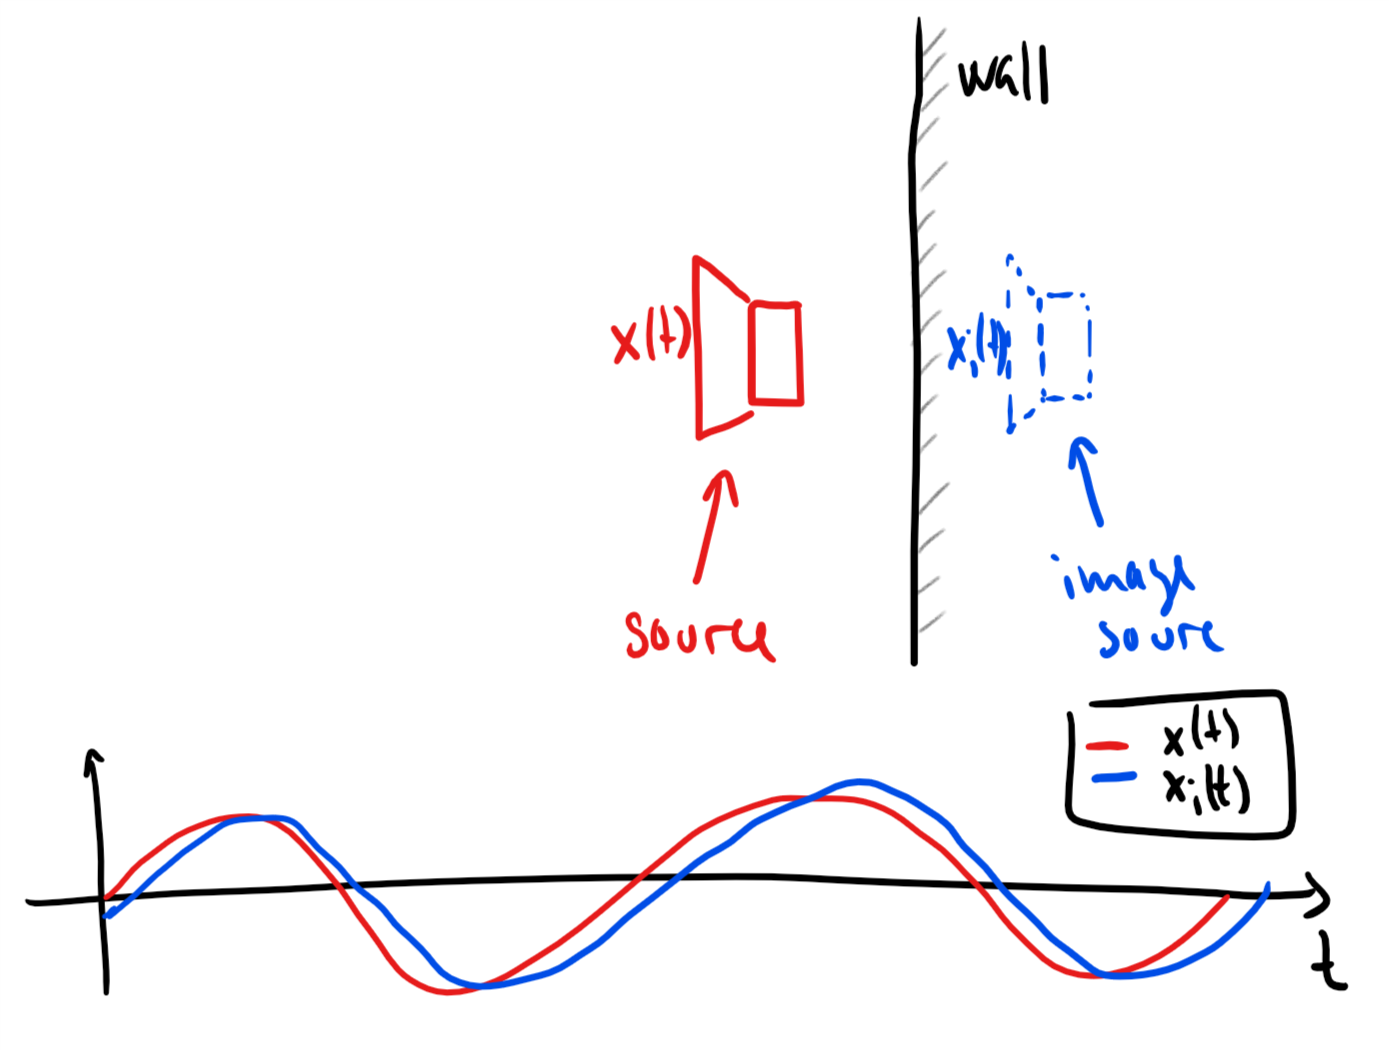 wall
x(t)
xᵢ(t)
source
image
soure
x(t)
xᵢ(t)
t